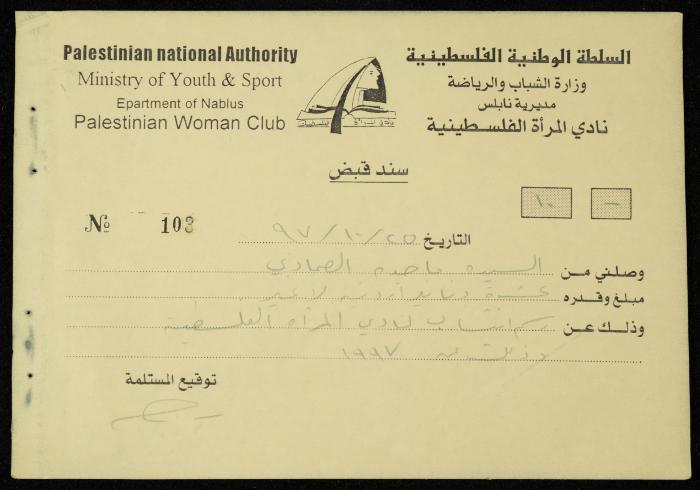 Palestinian national Authority
Ministry of Youth & Sport
Epartment of Nablus
Palestinian Woman Club
السلطة الوطنية الفلسطينية
وزارة الشباب والرياضة
مديرية نابلس
نادي المرأة الفلسطينية
سند قبض
١٠ —
№ 103
التاريخ ٩٧/١٠/٢٥
وصلني من السيدة ماجدة الصمادي
مبلغ وقدره عشرة دنانير أردنية لا غير
وذلك عن رسم انتساب لنادي المرأة الفلسطينية
وذلك ١٩٩٧
توقيع المستلمة